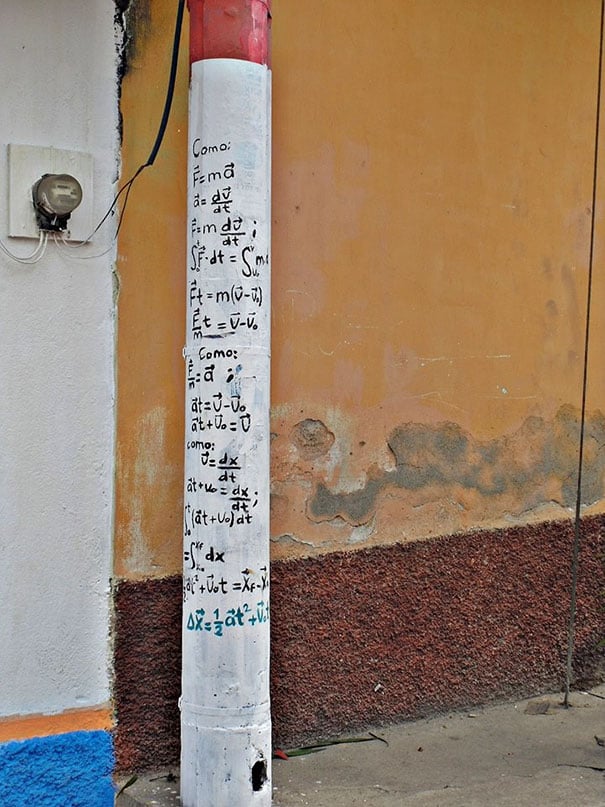 Como:
F⃗=ma⃗
a⃗=dv⃗/dt
F⃗=m dv⃗/dt ;
∫₀ᵗF⃗·dt = ∫ᵥ₀ᵛ m
F⃗t = m(v⃗-v⃗₀)
F⃗/m t = v⃗-v⃗₀
Como:
F⃗/m = a⃗ ;
a⃗t = v⃗-v⃗₀
a⃗t+v⃗₀ = v⃗
como:
v⃗=dx/dt
a⃗t+v₀=dx/dt ;
∫₀ᵗ(a⃗t+v₀)dt
=∫ₓ₀ˣᶠ dx
½a⃗t²+v⃗₀t =x⃗F-x⃗
Δx⃗=½a⃗t²+v⃗₀t